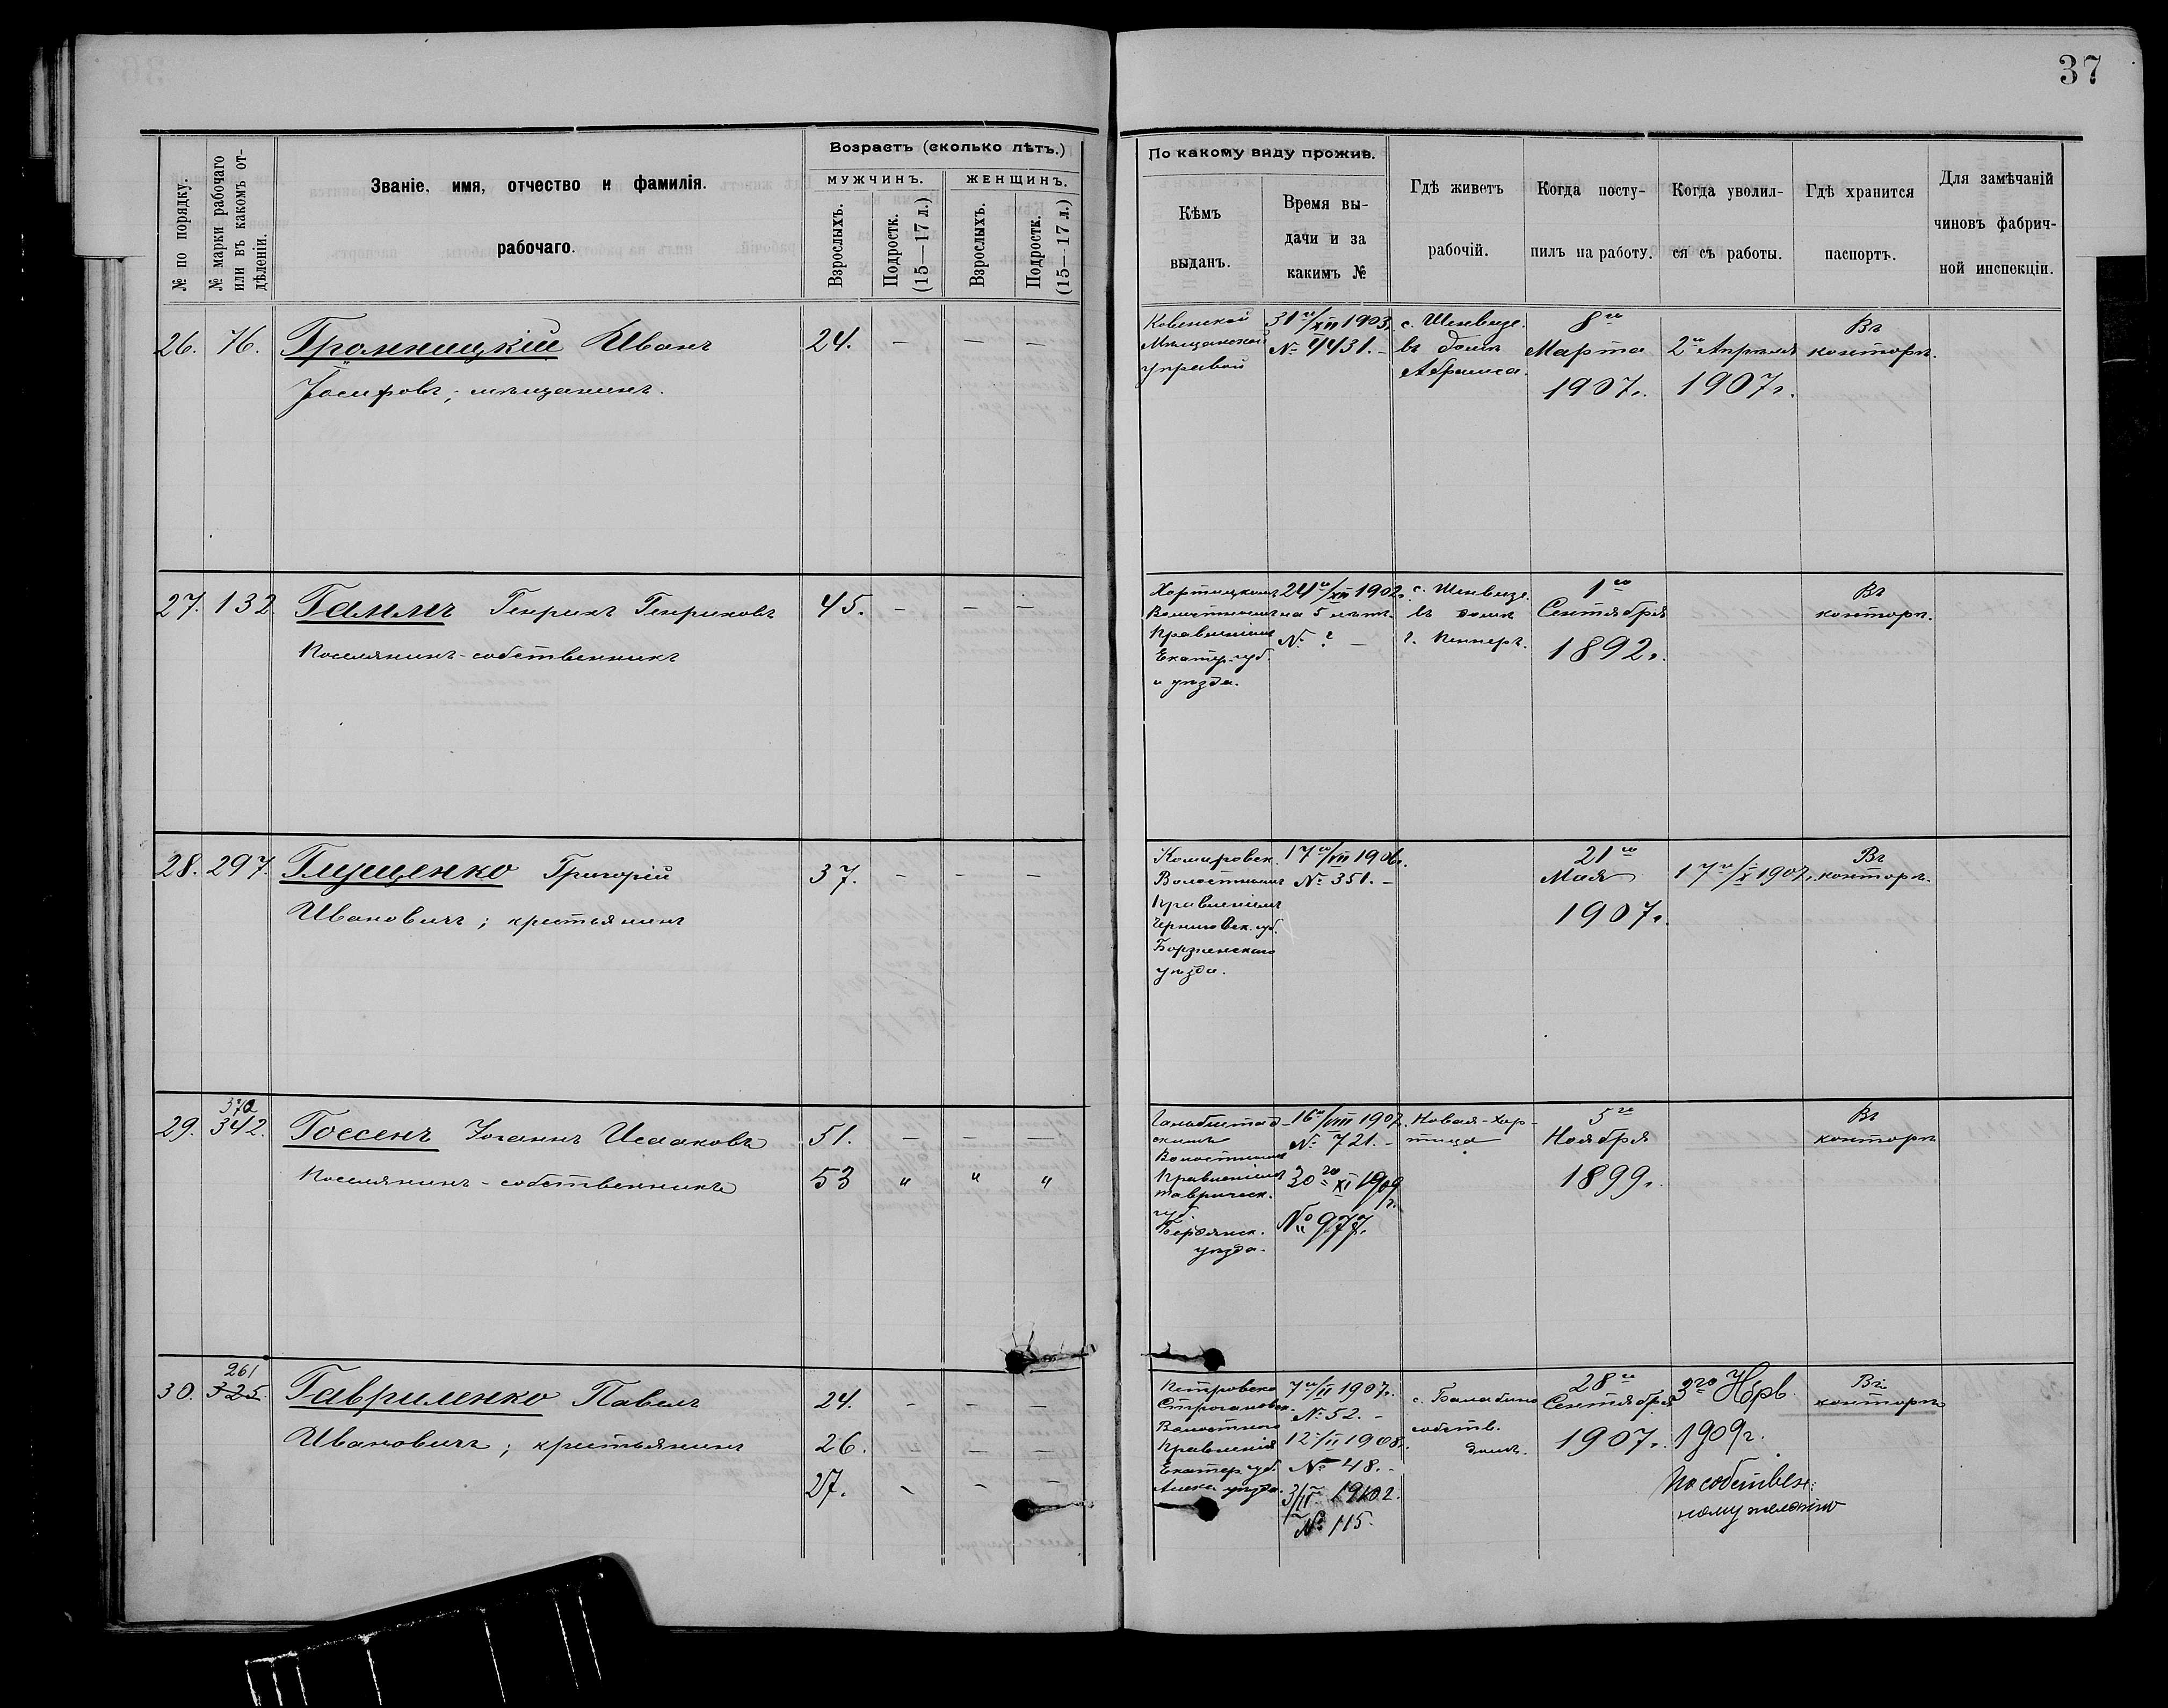 37
№ по порядку.
№ марки рабочаго или въ какомъ отдѣленіи.
Званіе, имя, отчество и фамилія.
рабочаго.
Возрастъ (сколько лѣтъ.)
мужчинъ.
женщинъ.
Взрослыхъ.
Подростк. (15—17 л.)
Взрослыхъ.
Подростк. (15—17 л.)
По какому виду прожив.
Кѣмъ
выданъ.
Время вы-
дачи и за
какимъ №
Гдѣ живетъ
рабочій.
Когда посту-
пилъ на работу.
Когда уволил-
ся съ работы.
Гдѣ хранится
паспортъ.
Для замѣчаній
чиновъ фабрич-
ной инспекціи.
26. 76. Громницкій Иванъ
Іосифовъ; мѣщанинъ.
24. — — —
Ковенской
Мѣщанской
управой
31го/XII 1903г.
№ 4431. —
с. Шенвизе.
въ домѣ
Абрамса.
8го
Марта
1907г.
2го Апрѣля
1907г.
Въ
конторѣ.
27. 132. Гаммъ Генрихъ Генриховъ
Поселянинъ-собственникъ
45. — — —
Хортицкимъ
Волостнымъ
Правленіемъ
Екатер. губ.
и уѣзда.
24го/XII 1902г.
на 5 лѣтъ.
№ ? —
с. Шенвизе.
въ домѣ
г. Пеннеръ.
1го
Сентября
1892г.
Въ
конторѣ.
28. 297. Глущенко Григорій
Ивановичъ; крестьянинъ
37. — — —
Комаровск.
Волостнымъ
Правленіемъ
Черниговск. губ.
Борзненскаго
уѣзда.
17го/VII 1906г.
№ 351. —
21го
Мая
1907г.
17го/X 1907г.
Въ
конторѣ.
370
29. 342. Госсенъ Іоганнъ Исааковъ
Поселянинъ-собственникъ
51. — — —
53 " " "
Гальбштад-
скимъ
Волостнымъ
Правленіемъ
Таврическ.
губ.
Бердянск.
уѣзда.
16го/VIII 1907г.
№ 721. —
30го XI 1909
г.
№ 977.
Новая-Хор-
тица
5го
Ноября
1899г.
Въ
конторѣ
261
30. 325. Гавриленко Павелъ
Ивановичъ; крестьянинъ
24. — — —
26. — — —
27. — — —
Петровско
Строгановск.
Волостного
Правленія
Екатер. губ.
Алекс. уѣзда.
7го/II 1907г.
№ 52. —
12/II 1908г.
№ 48. —
№ 115.
с. Балабино
собств.
домъ.
28го
Сентября
1907г.
1909г.
По собствен:
ному желанію
Въ
конторѣ